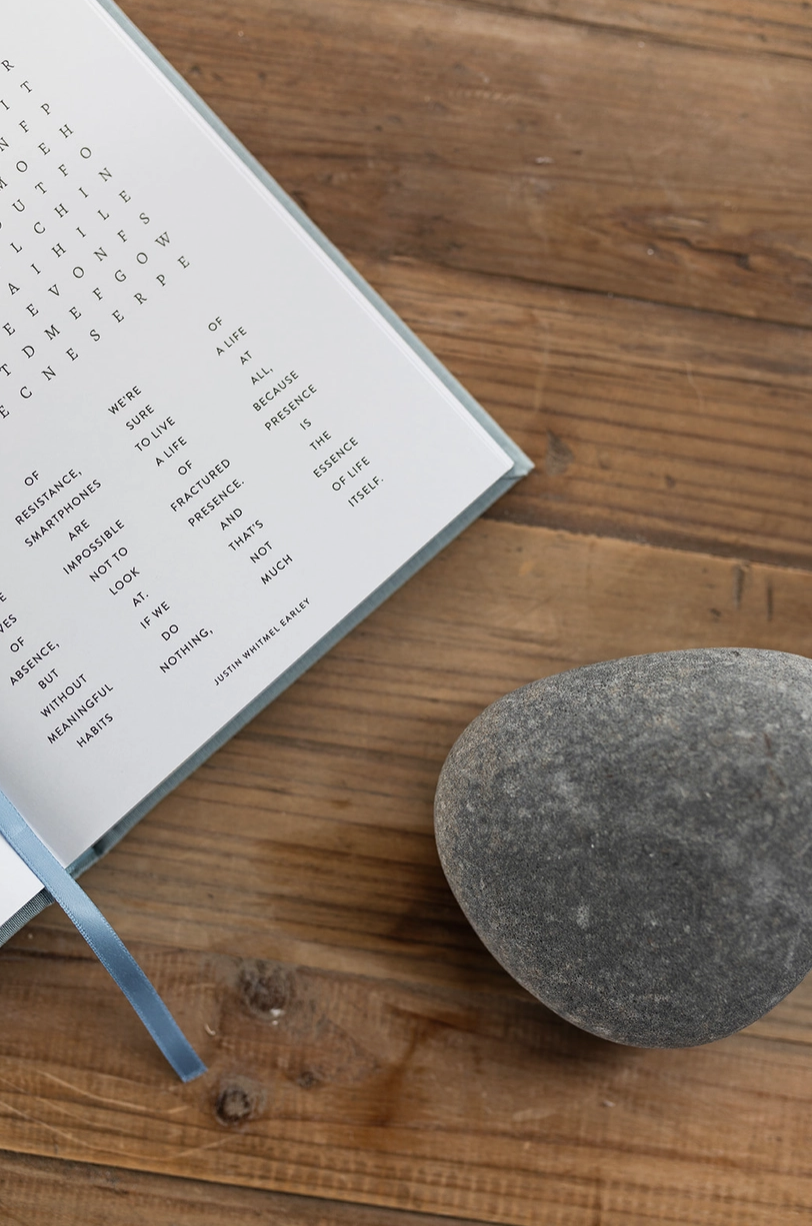 R
I T
N F P
M O E H
O U T F O
L C H I N
A I H I L E
E E V O N F S
T D M E F G O W
E C N E S E R P E
OF
ABSENCE,
BUT
WITHOUT
MEANINGFUL
HABITS
OF
RESISTANCE,
SMARTPHONES
ARE
IMPOSSIBLE
NOT TO
LOOK
AT.
IF WE
DO
NOTHING,
WE'RE
SURE
TO LIVE
A LIFE
OF
FRACTURED
PRESENCE.
AND
THAT'S
NOT
MUCH
OF
A LIFE
AT
ALL,
BECAUSE
PRESENCE
IS
THE
ESSENCE
OF LIFE
ITSELF.
JUSTIN WHITMEL EARLEY